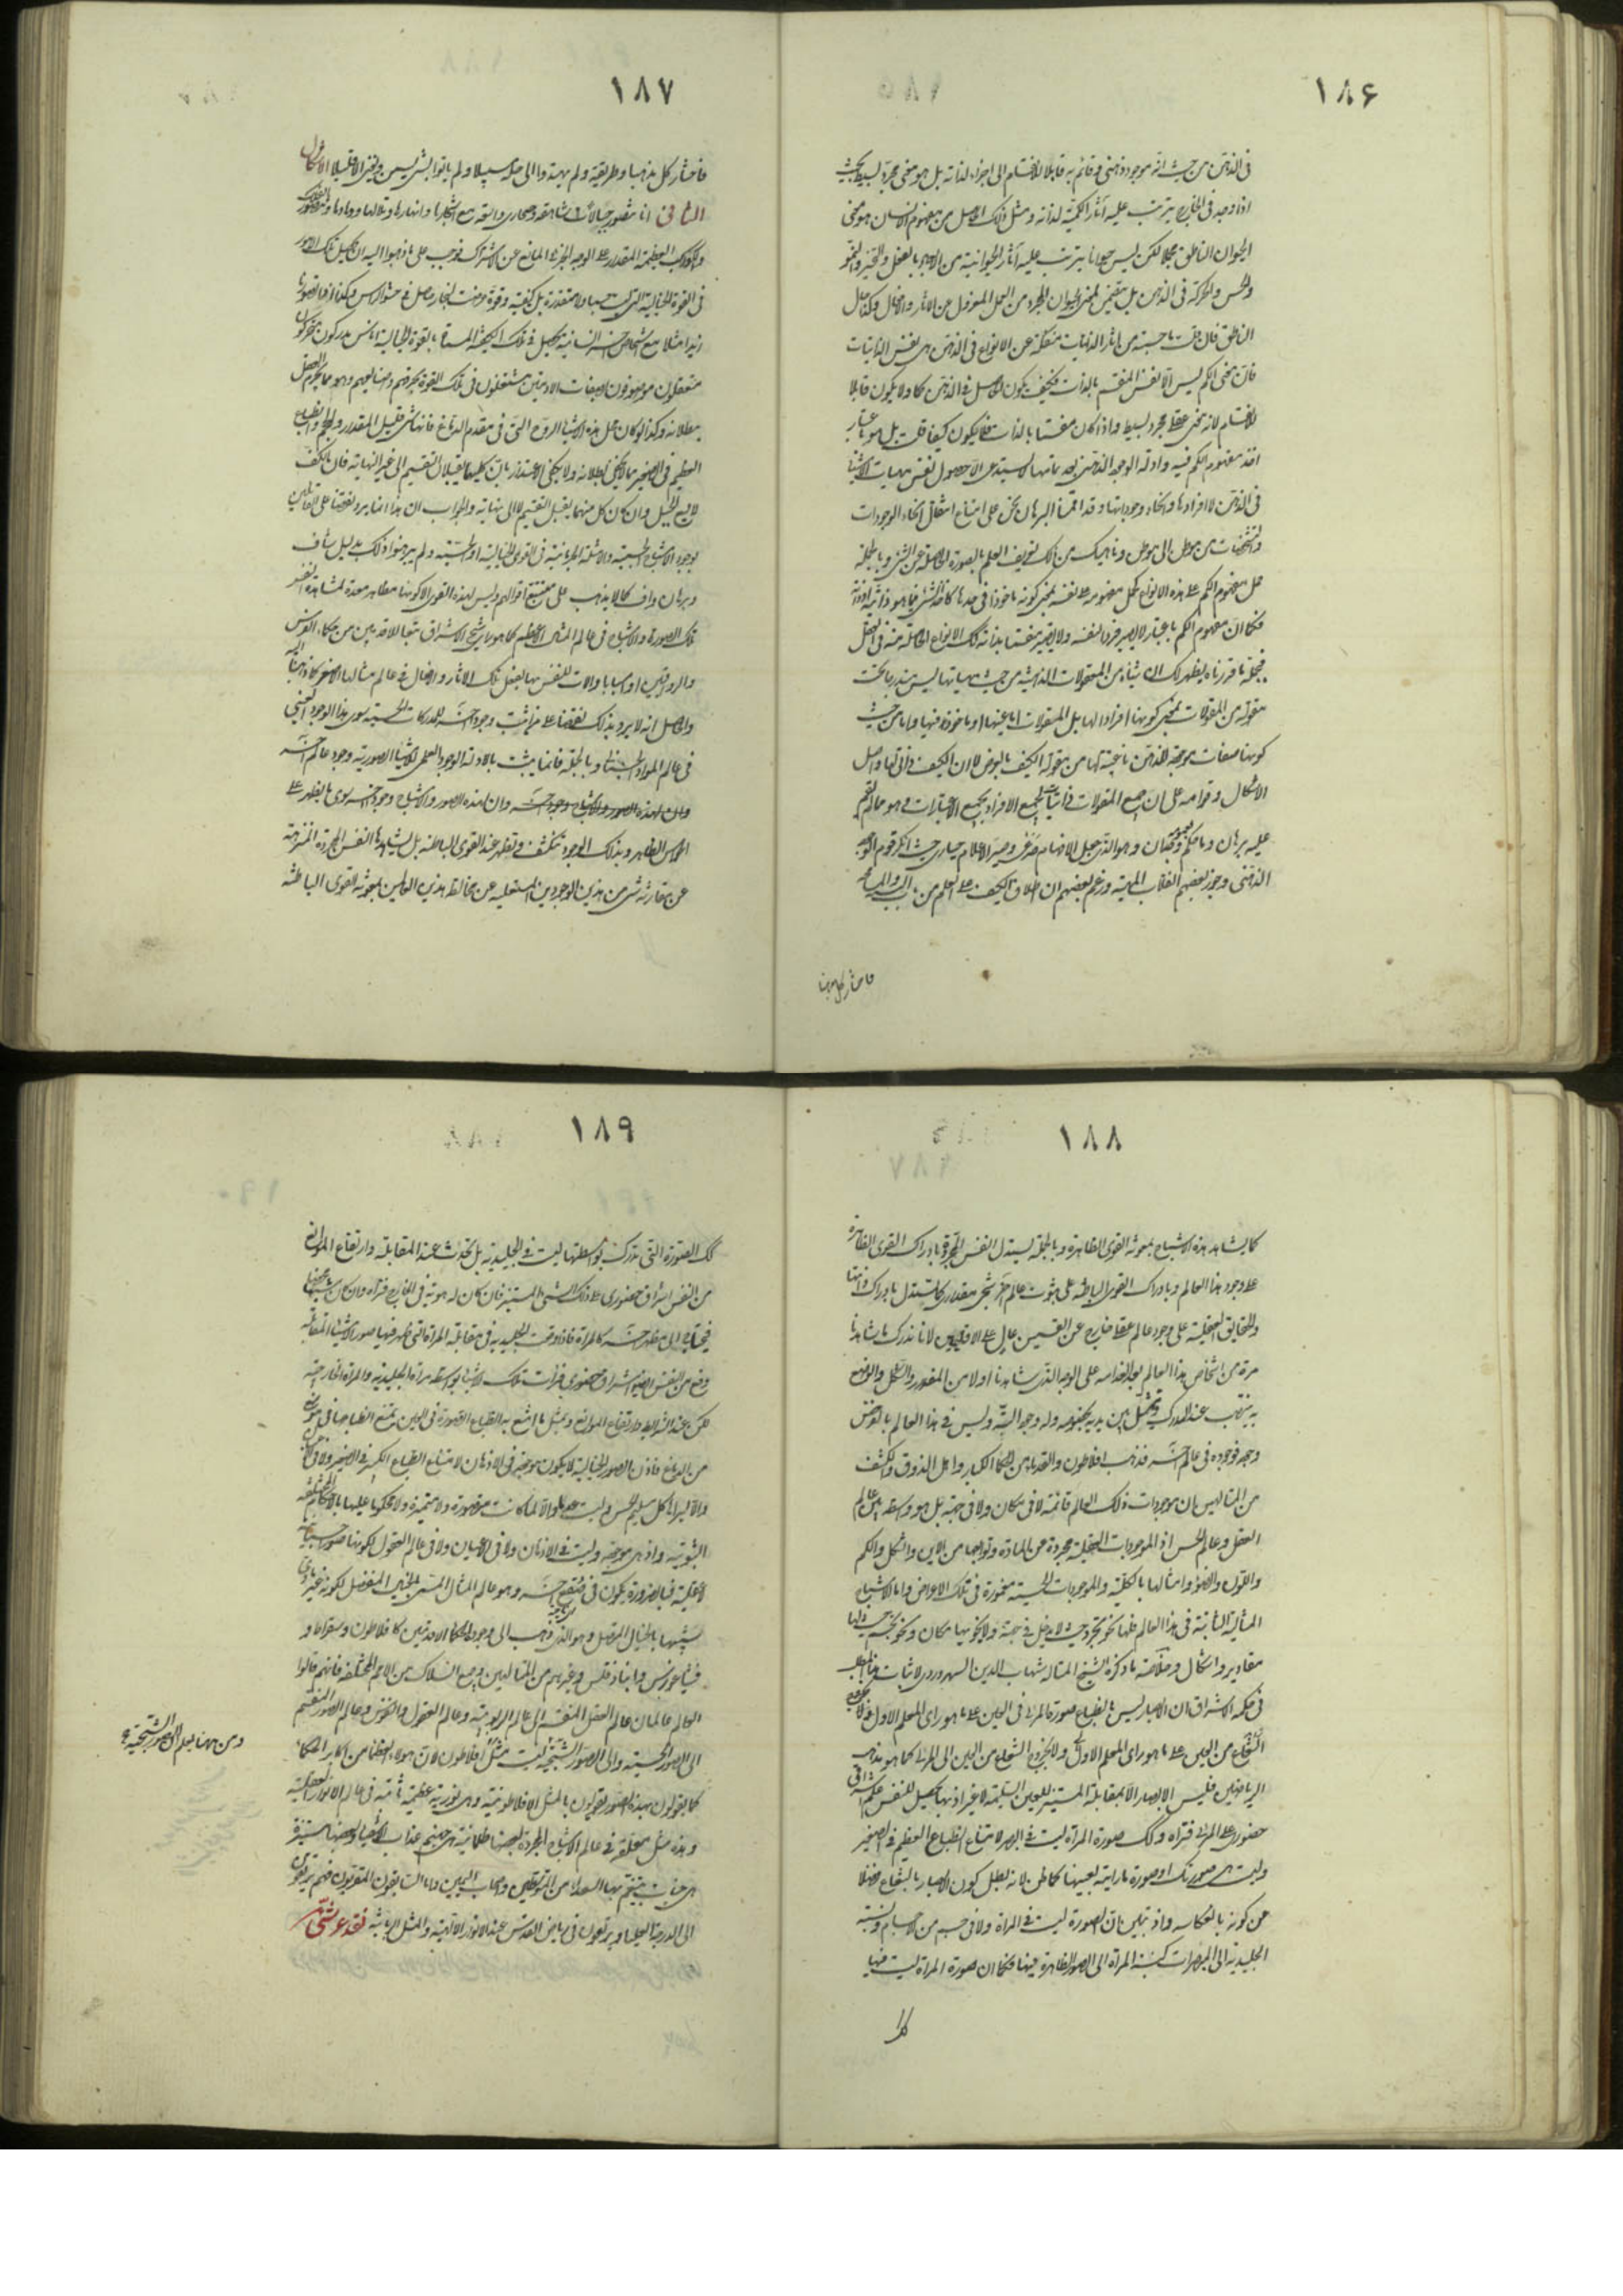 ۱۸۶
فی الذهن من حیث انه موجود ذهنی و قائم به قابلا للانقسام الی اجزاء لذاته بل هو معنی مجرد بسیط بحیث
اذا وجد فی الخارج یترتب علیه آثار الکمیة لذاته و مثل ذلک الحاصل من مفهوم الانسان هو معنی
الحیوان الناطق مجملا لکن لیس حیوانا یترتب علیه آثار الحیوانیة من الابعاد بالفعل و التحیز و النمو
و الحس و الحرکة فی الذهن بل یتضمن لمعنی الحیوان المجرد عن العمل المعزول عن الآثار و الافعال و کذا حال
الناطق فان قلت ما حسبته من آثار الذاتیات منفکة عن الانواع فی الذهن هی نفس الذاتیات
فان معنی الکم لیس الا نفس المنقسم بالذات فکیف یکون الحاصل فی الذهن کما و لا یکون قابلا
للانقسام لانه معنی عقلی مجرد بسیط و اذا کان منقسما بالذات فکیف یکون کیفا قلت بل هو باعتبار
اخذ مفهوم الکم فیه و ادلة الوجود الذهنی بعد تمامها لا یستدعی الا حصول نفس ماهیات الاشیاء
فی الذهن لا افرادها و انحاء وجوداتها و قد اقمنا البرهان نحن علی امتناع انتقال انحاء الوجودات
و التشخصات من موطن الی موطن و ناهیک من ذلک تعریف العلم بالصورة الحاصلة عن الشیء و بالجملة
حمل مفهوم الکم علی هذه الانواع کحمل مفهومه علی نفسه بمعنی کونه ماخوذا فی حدها کاخذ الشیء فیما هو ذاتیه او ذاته
فکما ان مفهوم الکم باعتبار لا یصیر فردا لنفسه و لا یصیر منقسما بذاته فکذلک الانواع الحاصلة منه فی العقل
فجملة ما قررناه یظهر لک ان شیئا من المعقولات الذهنیة من حیث ماهیاتها لیس مندرجا تحت
مقولة من المقولات بمعنی کونها افرادا لها بل المقولات اما عینها او ماخوذة فیها و اما من حیث
کونها صفات موجودة للذهن ناعتة لها من مقولة الکیف بالعرض لا ان الکیف ذاتی لها و اصل
الاشکال و قوامه علی ان جمیع المقولات ذاتیات لجمیع الافراد بجمیع الاعتبارات و هو مما لم یقم
علیه برهان و ما حکم بعمومه وجدان و هو الذی جعل الافهام صرعی و صیر الاعلام حیاری حیث انکر قوم الوجود
الذهنی و جوز بعضهم انقلاب الماهیة و زعم بعضهم ان اطلاق الکیف علی العلم من باب التشبیه و المسامحة
فاختار کل مذهبا
۱۸۷
فاختار کل مذهبا و طریقة و لم یهتدوا الی حله سبیلا و لم یاتوا بشیء یسمن و یغنی الا قلیلا الاشکال
الثانی انا نتصور جبالا شاهقة و صحاری واسعة مع اشجارها و انهارها و تلالها و وهادها و نتصور الفلک
و الکواکب العظیمة المقدار علی الوجه الجزئی المانع من الاشتراک فوجب علی ما ذهبوا الیه ان یحصل تلک الامور
فی القوة الخیالیة التی لیست جسما و لا متقدرة بل کیفیة و قوة عرضت لبخار حاصل فی حشو الراس و کذا اذا نتصور
زیدا مثلا مع اشخاص اخر انسانیة یحصل فی تلک الکیفیة المسماة بالقوة الخیالیة اناس مدرکون متحرکون
متعقلون موصوفون بصفات الآدمیین مشتغلون فی تلک القوة بحرفهم و صنایعهم و هو مما یجزم العقل
ببطلانه و کذا لو کان محل هذه الاشیاء الروح التی فی مقدم الدماغ فانها شیء قلیل المقدار و الحجم و انطباع
العظیم فی الصغیر مما لا یخفی بطلانه و لا یکفی الاعتذار بان کلیهما یقبلان التقسیم الی غیر النهایة فان الکف
لا یسع الجبل و ان کان کل منهما یقبل التقسیم لا الی نهایة و الجواب ان هذا انما یرد نقضا علی القائلین
بوجود الاشباح الجسمیة و الامثلة الجرمانیة فی القوی الخیالیة او الحسیة و لم یبرهنوا ذلک بدلیل شاف
و برهان واف کما لا یذهب علی متتبع اقوالهم و لیس لهذه القوی الا کونها مظاهر معدة لمشاهدة النفس
تلک الصورة و الاشباح فی عالم المثال الاعظم کما هو رای شیخ الاشراق تبعا للاقدمین من حکماء الفرس
و الرواقیین او اسبابا و آلات للنفس بها یفعل تلک الآثار و الافعال فی عالم مثالها الاصغر کما ذهبنا الیه
و الحاصل انه لا یرد بذلک نقضا علی من اثبت وجودا آخر للمدرکات الحسیة سوی هذا الوجود العینی
فی عالم المواد الجسمانیة و بالجملة فانما یثبت بالادلة الوجود العلمی للاشیاء الصوریة وجود عالم آخر
و ان لهذه الصور و الاشباح وجود آخر و ان لهذه الصور و الاشباح وجودا آخر سوی ما یظهر علی
الحواس الظاهرة و بذلک الوجود تنکشف و تظهر عند القوی الباطنة بل یشاهدها النفس المجردة المنزهة
عن مقارنة شیء من هذین الوجودین المستعلیة عن مخالطة هذین العالمین بمعونة القوی الباطنة
۱۸۸
کما یشاهد هذه الاشباح بمعونة القوی الظاهرة و بالجملة یستدل النفس المجردة بادراک القوی الظاهرة
علی وجود هذا العالم و بادراک القوی الباطنة علی ثبوت عالم آخر شبحی مقداری کما تستدل بادراک ذاتها
و الحقایق العقلیة علی وجود عالم عقلی خارج عن القسمین عال علی الاقلیمین لانا ندرک ما شاهدنا
مرة من اشخاص هذا العالم بعد انعدامه علی الوجه الذی شاهدناه اولا من المقدار و الشکل و الوضع
به ینتصب عند المدرک و یتمثل بین یدیه بخصوصه و له وجود البتة و لیس فی هذا العالم بالفرض
وجوده فوجوده فی عالم آخر فذهب افلاطون و القدماء من الحکماء الکبار و اهل الذوق و الکشف
من المتالهین ان موجودات ذلک العالم قائمة لا فی مکان و لا فی جهة بل هو واسطة بین عالم
العقل و عالم الحس اذ الموجودات العقلیة مجردة عن المادة و توابعها من الاین و الشکل و الکم
و اللون و الضوء و امثالها بالکلیة و الموجودات الحسیة مغمورة فی تلک الاعراض و اما الاشباح
المثالیة الثابتة فی هذا العالم فلها نحو تجرد حیث لا یدخل فی جهة و لا یحویها مکان و نحو تجسم حیث لها
مقادیر و اشکال و خلاصة ما ذکره الشیخ المتاله شهاب الدین السهروردی لاثبات هذا المطلب
فی حکمة الاشراق ان الابصار لیس بانطباع صورة المرئی فی العین علی ما هو رای المعلم الاول و لا بخروج
الشعاع من العین علی ما هو رای المعلم الاول و لا بخروج الشعاع من العین الی المرئی کما هو مذهب
الریاضیین فلیس الابصار الا بمقابلة المستنیر للعین السلیمة لا غیر اذ بها یحصل للنفس علم اشراقی
حضوری علی المرئی فتراه و کذلک صورة المرآة لیست فی البصر لامتناع انطباع العظیم فی الصغیر
و لیست هی صورتک او صورة ما رایته بعینها کما ظن لانه بطل کون الابصار بالشعاع فضلا
عن کونه بانعکاسه و اذ تبین ان الصورة لیست فی المرآة و لا فی جسم من الاجسام و نسبة
الجلیدیة الی المبصرات کنسبة المرآة الی الصور الظاهرة فیها فکما ان صورة المرآة لیست فیها
کذلک
۱۸۹
کذلک الصورة التی تدرک بواسطتها لیست فی الجلیدیة بل تحدث عند المقابلة و ارتفاع الموانع
من النفس اشراق حضوری علی ذلک الشیء المستنیر فان کان له هویة فی الخارج فتراه و ان کان شبحا محضا
فیحتاج الی مظهر آخر کالمرآة فاذا وقعت الجلیدیة فی مقابلة المرآة التی ظهر فیها صور الاشیاء المقابلة
وقع من النفس ایضا اشراق حضوری فرات تلک الاشیاء بواسطة مرآة الجلیدیة و المرآة الخارجیة
لکن عند الشرایط و ارتفاع الموانع و بمثل ما امتنع به انطباع الصورة فی العین یمتنع انطباعها فی موضع
من الدماغ فاذن الصور الخیالیة لا یکون موجودة فی الاذهان لامتناع انطباع الکبیر فی الصغیر و لا فی الاعیان
و الا لیراها کل سلیم الحس و لیست عدما و الا لما کانت متصورة و لا متمیزة و لا محکوما علیها بالاحکام المختلفة
الثبوتیة و اذ هی موجودة و لیست فی الاذهان و لا فی الاعیان و لا فی عالم العقول لکونها صورا جسمانیة
لا عقلیة فبالضرورة یکون فی صقع آخر و هو عالم المثال المسمی بالخیال المنفصل لکونه غیر مادی
تشبیها بالخیال المتصل و هو الذی ذهب الی وجوده الحکماء الاقدمین کافلاطون و سقراط و
فیثاغورس و انباذقلس و غیرهم من المتالهین و جمیع السلاک من الامم المختلفة فانهم قالوا
العالم عالمان عالم العقل المنقسم الی عالم الربوبیة و عالم العقول و النفوس و عالم الصور المنقسم
الی الصور الحسیة و الی الصور الشبحیة لیست مثل افلاطون لان هولاء العظماء من اکابر الحکماء
کما یقولون بهذه الصور یقولون بالمثل الافلاطونیة و هی نوریة عظیمة ثابتة فی عالم الانوار العقلیة
و هذه مثل معلقة فی عالم الاشباح المجردة بعضها ظلمانیة هی جهنم عذاب الاشقیاء و بعضها مستنیرة
هی جنات یتنعم بها السعداء من المتوسطین و اصحاب الیمین و اما السابقون المقربون فهم یرتقون
الی الدرجة العلیا و یرتعون فی ریاض القدس عند الانوار الالهیة و المثل الربانیة نقد عرشی
و من ههنا یعلم ان الصور الشبحیة